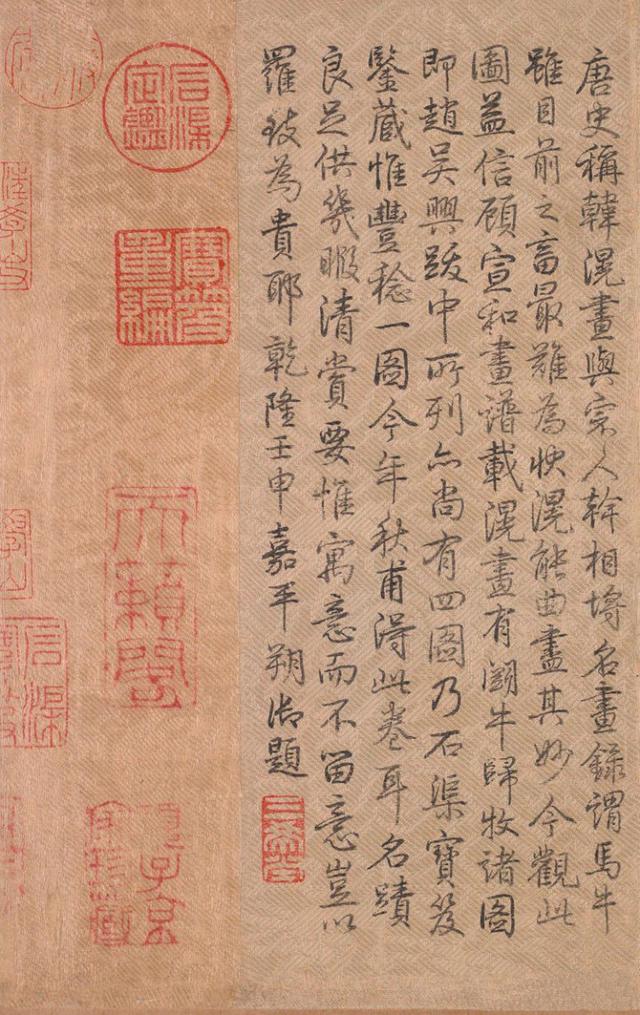 唐史稱韓滉畫與宗人幹相埒名畫錄謂馬牛
雖目前之畜最難為狀滉能曲盡其妙今觀此
圖益信顧宣和畫譜載滉畫有鬬牛歸牧諸圖
即趙吳興跋中所列亦尚有四圖乃石渠寶笈
鑒藏惟豐稔一圖今年秋甫得此卷耳名蹟
良足供幾暇清賞要惟寓意而不留意豈以
羅致為貴耶乾隆壬申嘉平朔御題
石渠定鑑
寶笈重編
天籟閣
項子京家珍藏